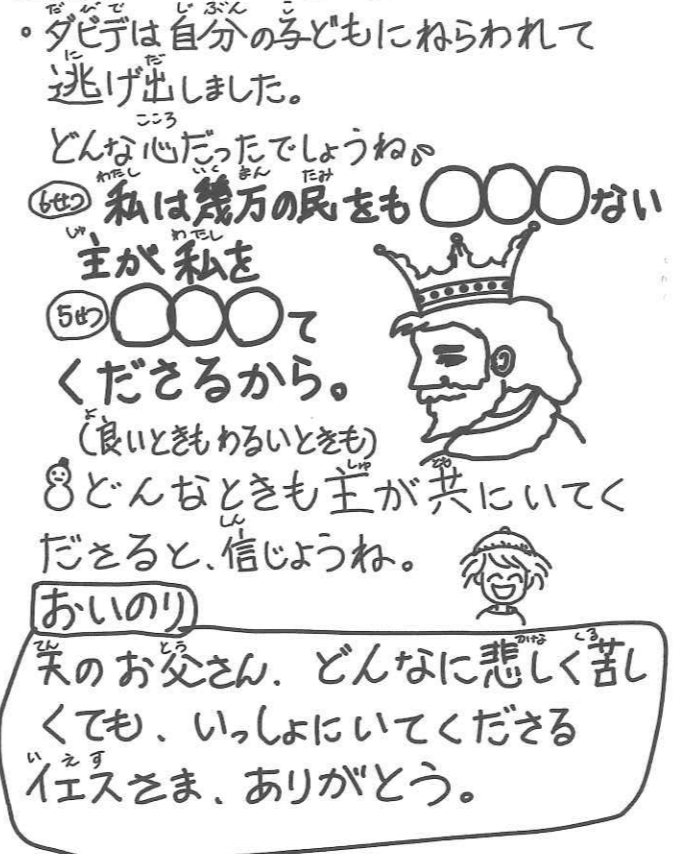 。ダビデは自分の子どもにねらわれて
逃げ出しました。
どんな心だったでしょうね。
6せつ 私は幾万の民をも〇〇〇ない
主が私を
5せつ 〇〇〇て
くださるから。
(良いときもわるいときも)
どんなときも主が共にいてく
ださると、信じようね。
おいのり
天のお父さん、どんなに悲しく苦し
くても、いっしょにいてくださる
イエスさま、ありがとう。